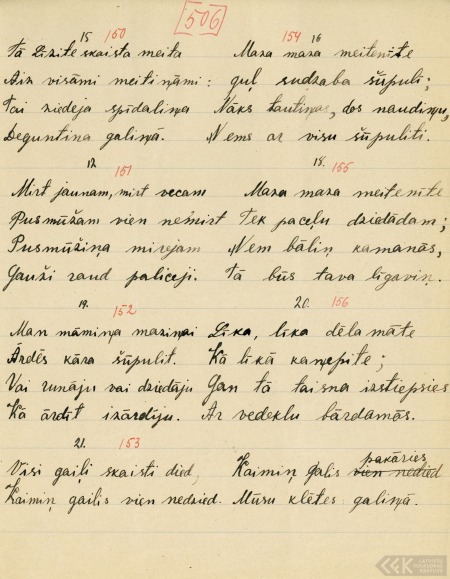 506
15 150
Tā Līzite skaista meita
Aiz visāmi meitiņāmi:
Tai ziedeja spīdaliņa
Deguntiņa galiņā.
154 16
Maza maza meitenite
guļ sudzaba šūpuli;
Nāks tautiņas, dos naudiņu,
Nems ar visu šūpuliti.
17. 151
Mirt jaunam, mirt vecam
Pusmūžam vien nemirt
Pusmūžiņa mirejam
Gauži raud paliceji.
18. 155
Maza maza meitenite
Tek paceļu dziedādam;
Nem bāliņ kamanās,
Tā būs tava līgaviņ.
19. 152
Man māmiņa maziņai
Ārdēs kāra šūpulit.
Vai runāju vai dziedāju
Kā ārdīt izārdiju.
20. 156
Līka, līka dēla māte
Kā līkā kaņepite;
Gan tā taisna izstiepsies
Ar vedeklu bārdamās.
21. 153
Visi gaiļi skaisti died,
Kaimiņ gailis vien nedzied.
pakāries
Kaimiņ gailis vien nedzied
Mūsu klētes galiņā.
LATVIEŠU FOLKLORAS KRĀTUVE